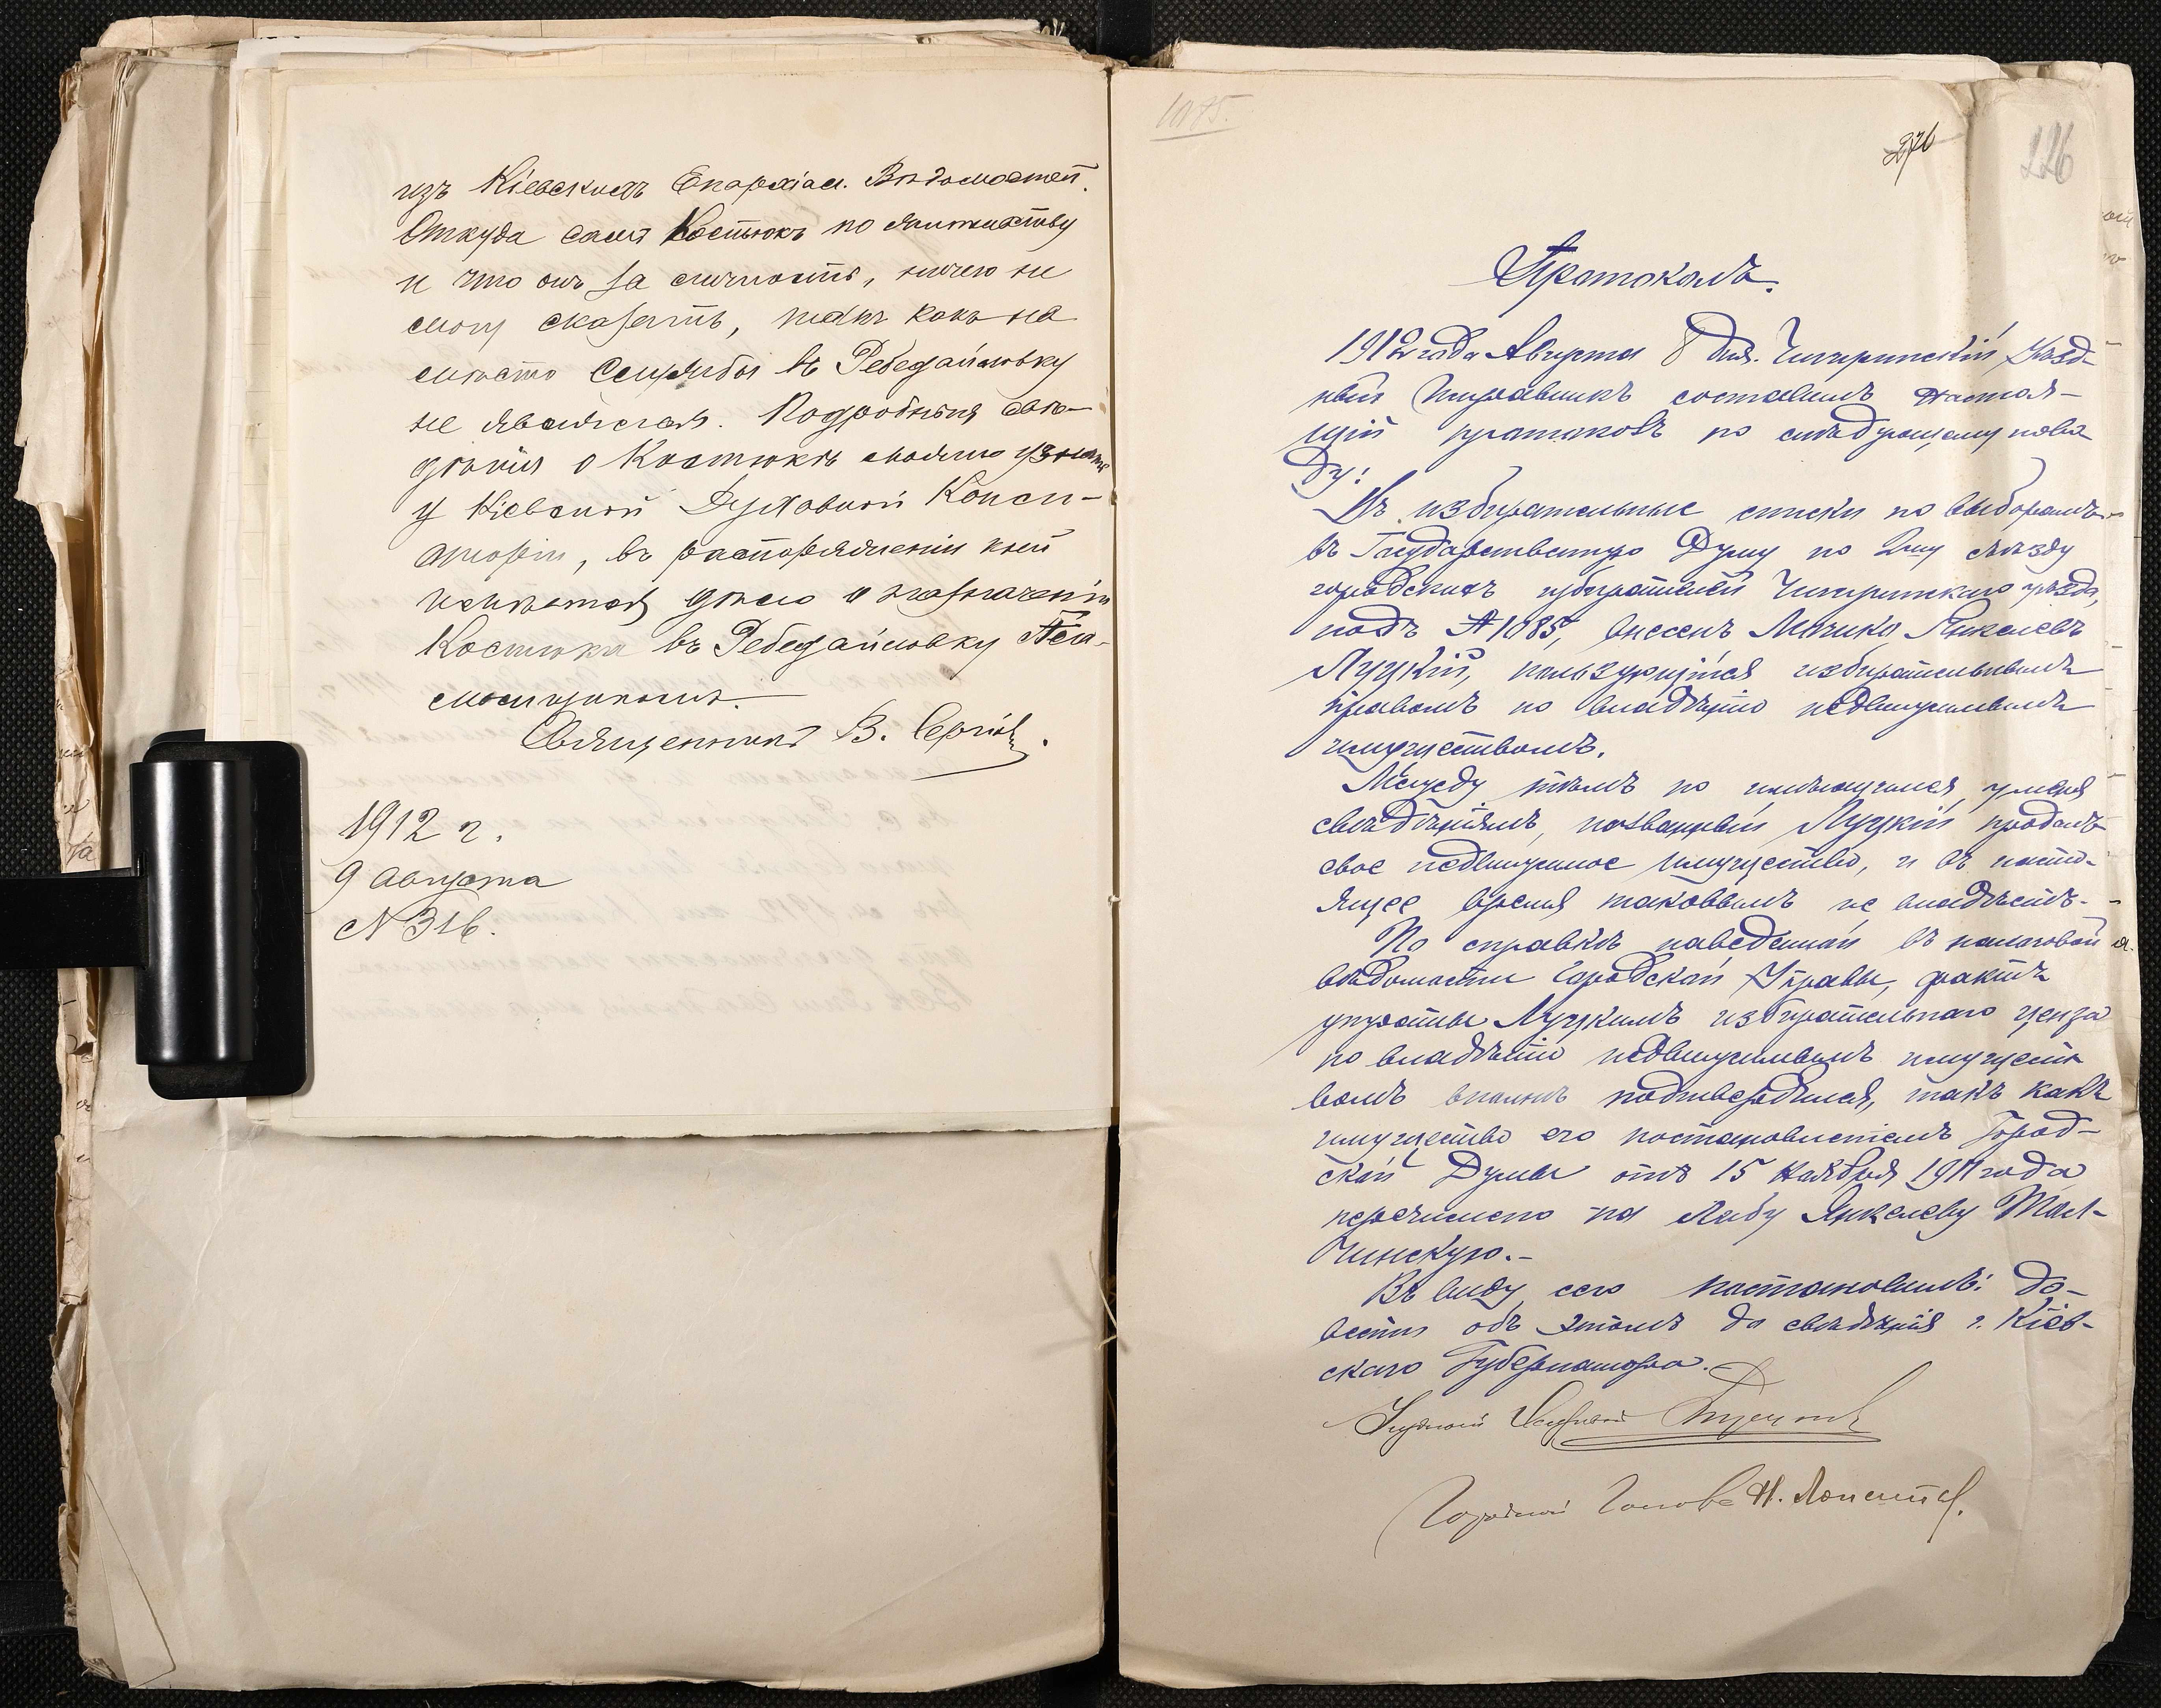 изъ Кіевскихъ Епархіал. Вѣдомостей.
Откуда самъ Костюкъ по жительству
и что онъ за личность, ничего не
могу сказать, такъ какъ на
мѣсто службы въ Ребедайловку
не являлся. Подробныя свѣ-
дѣнія о Костюкѣ можно узнать
у Кіевской Духовной Конси-
сторіи, въ распоряженіи коей
имѣется дѣло о назначеніи
Костюка въ Ребедайловку Пса-
ломщикомъ.
Священникъ В. Сергіевъ.
1912 г.
9 Августа
№ 316.
1075.
276
226
Протоколъ.
1912 года Августа 8 дня. Чигиринскій Уѣзд-
ный Исправникъ составилъ настоя-
щій протоколъ по слѣдующему пово
ду:
Въ избирательные списки по выборамъ
въ Государственную Думу по 2му съѣзду
городскихъ избирателей Чигиринскаго уѣзда,
подъ № 1085, внесенъ Янкелевъ
Луцкій, пользующійся избирательнымъ
правомъ по владѣнію недвижимымъ
имуществомъ.
Между тѣмъ по имѣющимся у меня
свѣдѣніямъ, названный Луцкій продалъ
свое недвижимое имущество, и въ насто-
ящее время таковымъ не владѣетъ.
По справкѣ наведенной въ налоговой
вѣдомости Городской Управы, фактъ
утраты Луцкимъ избирательнаго ценза
по владѣнію недвижимымъ имущест
вомъ вполнѣ подтвердился, такъ какъ
имущество его постановленіемъ Город-
ской Думы отъ 15 Ноября 1911 года
перечислено на Либу Янкелеву Тал-
чинскую.-
Въ виду сего постановилъ: до-
вести объ этомъ до свѣдѣнія г. Кіев-
скаго Губернатора.
Уѣздный Исправникъ
Городской Голова Н.